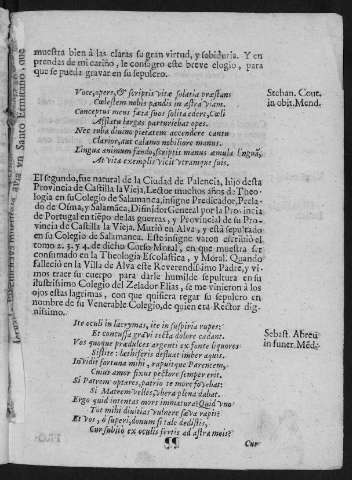 muestra bien à las claras su gran virtud, y sobiduria. Y en
prendas de mi cariño, le consagro este breve elogio, para
que se pueda gravar en su sepulcro.
Voce, opere, & scriptis vitæ solatia præstans
Cœlestem nobis pandis in astra viam.
Conceptus mens fæta suos solita edere, Cœli
Afflatu largas parturiebat opes.
Nec suba diuum pietatem accendere cantu
Clarior, aut calamo nobiliore manus.
Lingua animum fando, scriptis manus æmula Linguæ,
At vita exemplis vicit utramque suis.
Steban. Cout.
in obit. Mend.
El segundo, fue natural de la Ciudad de Palencia, hijo desta
Provincia de Castilla la Vieja, Lector muchos años de Theo-
logia en su Colegio de Salamanca, insigne Predicador, Prela-
do de Osma, y Salamāca, Difinidor General por la Provincia
de Portugal en tiēpo de las guerras, y Provincial de su Pro-
vincia de Castilla la Vieja. Muriò en Alva, y està sepultado
en su Colegio de Salamanca. Este insigne varon escriviò el
tomo 2. 3. y 4. de dicho Curso Moral, en que muestra ser
consumado en la Theologia Escolastica, y Moral. Quando
falleciò en la Villa de Alva este Reverendissimo Padre, y vi-
mos traer su cuerpo para darle humilde sepultura en su
ilustrissimo Colegio del Zelador Elias, se me vinieron à los
ojos estas lagrimas, con que quisiera regar su sepulcro en
nombre de su Venerable Colegio, de quien era Rector dig-
nissimo.
Ite oculi in lacrymas, ite in suspiria rupes:
Et concussa gravi tecta dolore cadant.
Vos quoque prædulces argenti ex fonte liquores
Sistite: lethiferis defluat imber aquis.
Invidit fortuna mihi, rapuitque Parentem,
Cuius amor fixus pectore semper erit.
Si Patrem optares, patrio te more fovebat:
Si Matrem velles, vbera plena dabat.
Ergo quid intentas mors immatura? Quid vno
Tot mihi divitias vulnere sæva rapis?
Et vos, ô superi, donum si tale dedistis,
Cur subitò ex oculis fertis ad astra meis?
Sebast. Abreu
in funer. Mēdē.
¶¶
Cur